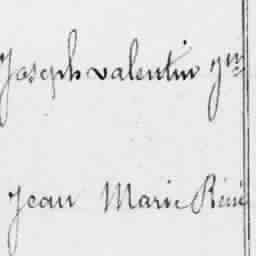 Joseph valentin
Jean Marie René